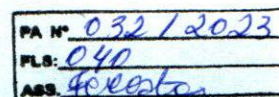 PA Nº 032 / 2023
FLS: 040
ASS.